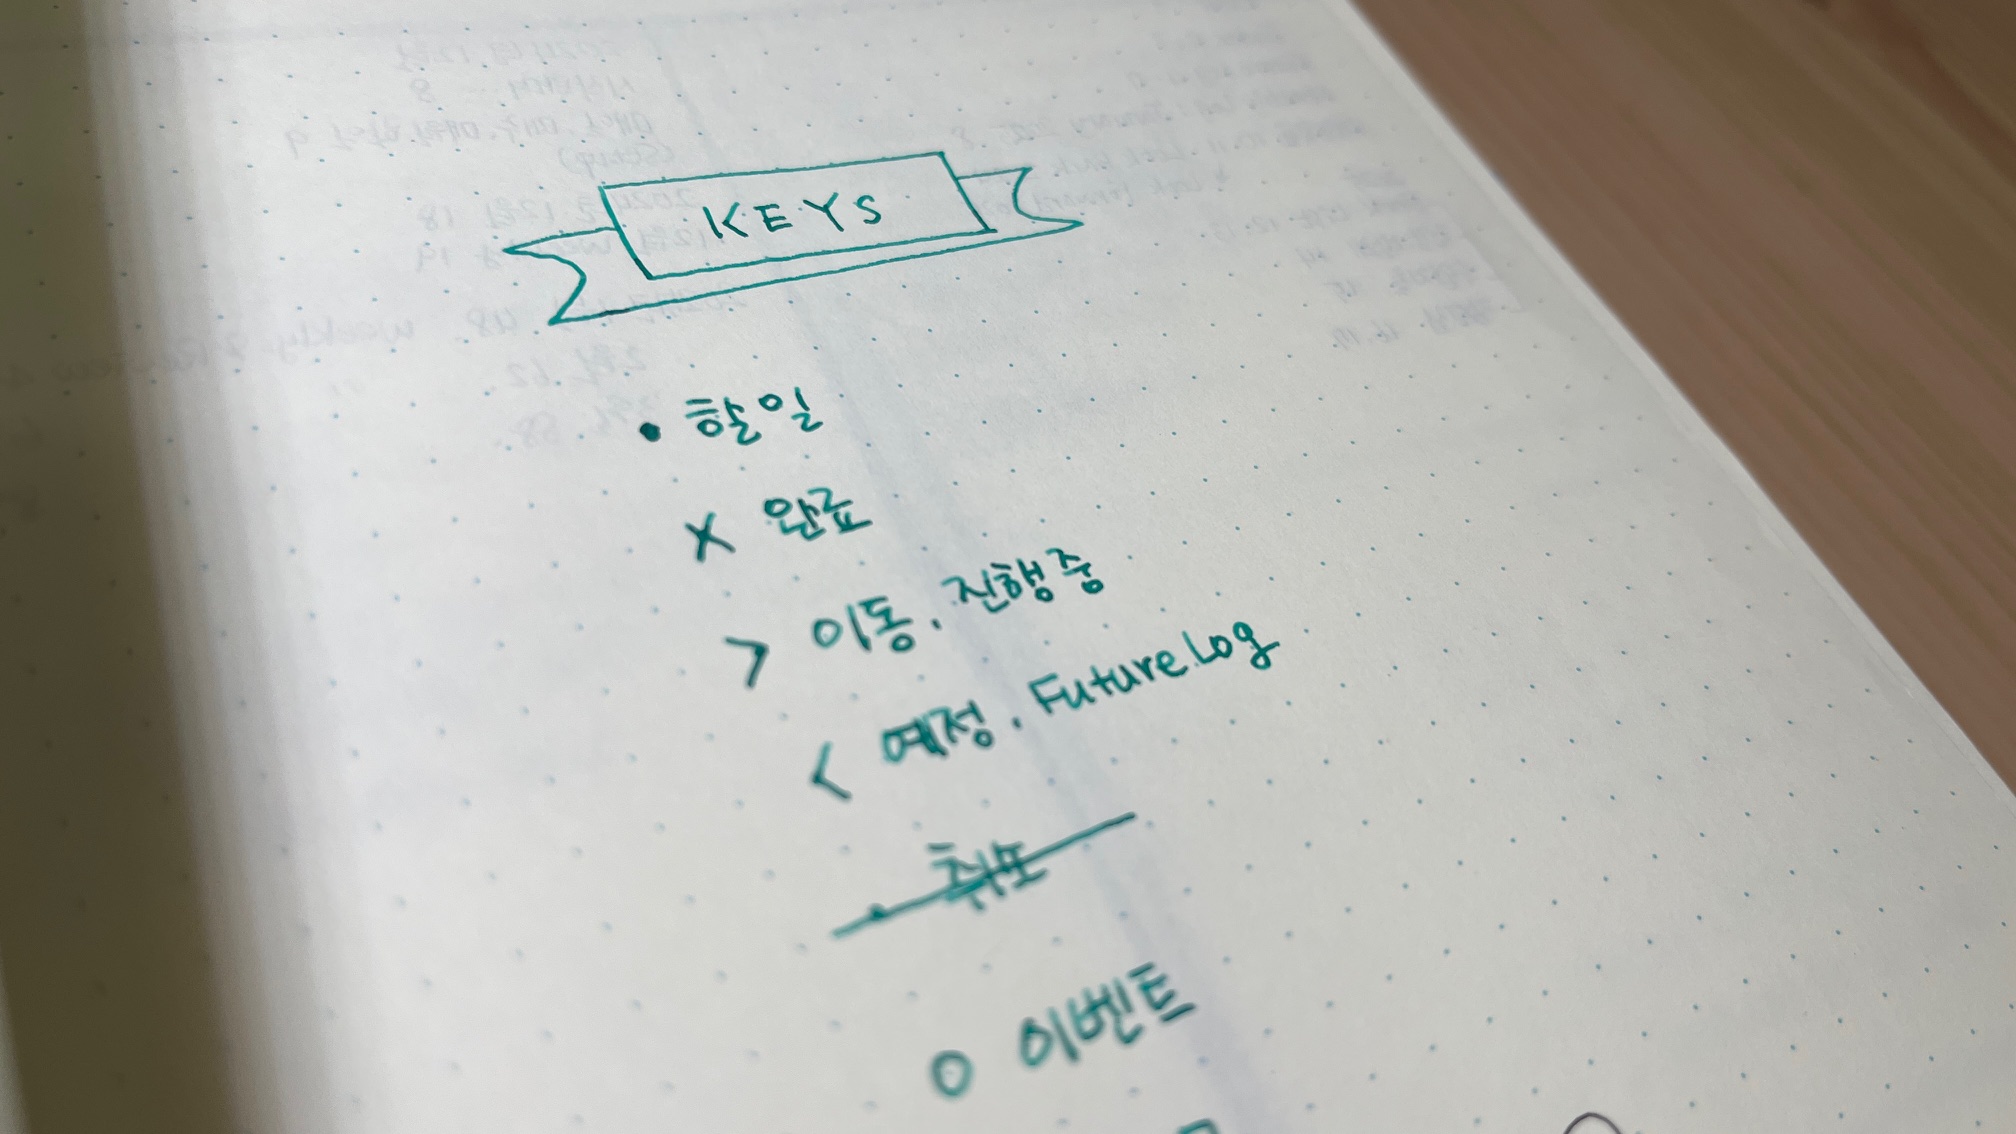 KEYS
• 할일
x 완료
> 이동, 진행중
< 예정, Future Log
• 취소
o 이벤트